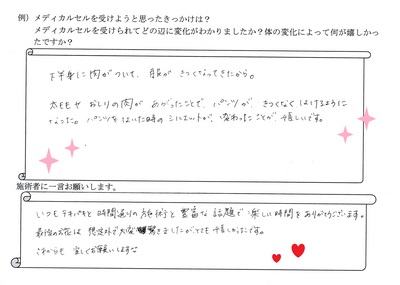 例）メディカルセルを受けようと思ったきっかけは？
メディカルセルを受けられてどの辺に変化がわかりましたか？体の変化によって何が嬉しかっ
たですか？
下半身に肉がついて、服がきつくなってきたから。
太ももやおしりの肉があがったことで、パンツがきつくなくはけるように
なった。パンツをはいた時のシルエットが、変わったことが、嬉しいです。
施術者に一言お願いします。
いつもテキパキと時間通りの施術と豊富な話題で楽しい時間をありがとうございます。
最後のお花は想定外で大変驚きましたがとても嬉しかったです。
これからも宜しくお願いします